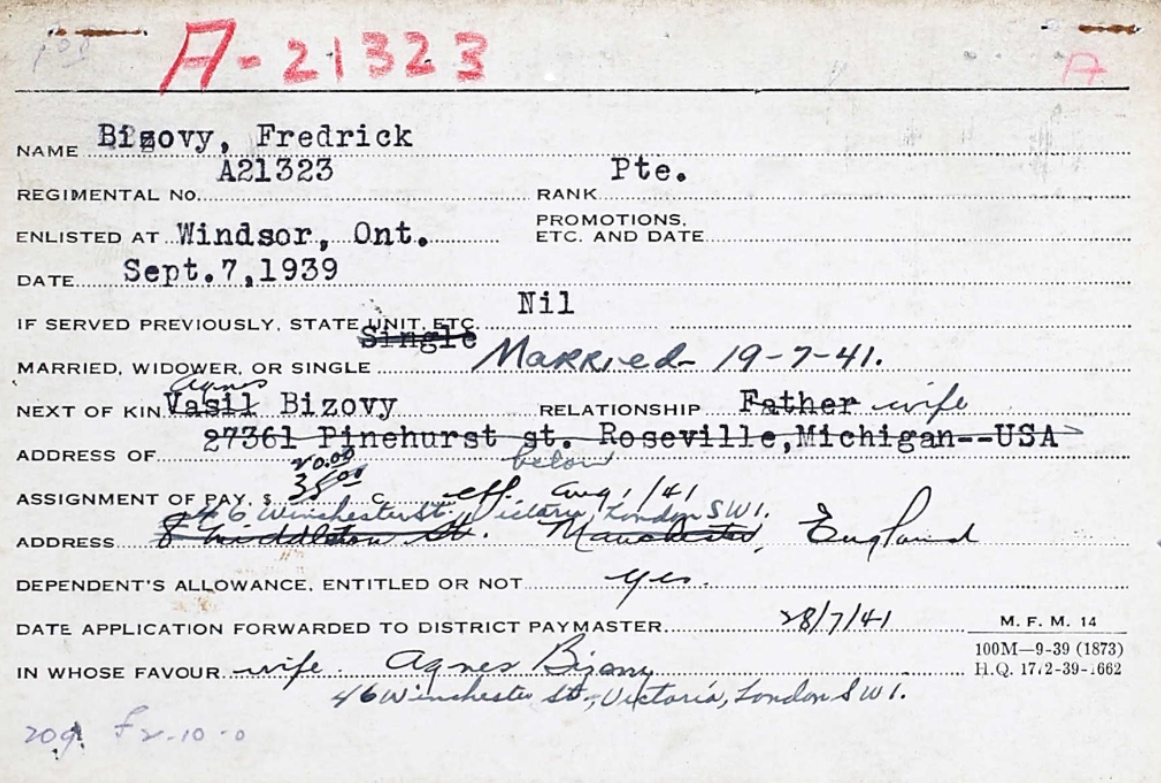 A-21323 A
NAME Bizovy, Fredrick
REGIMENTAL No. A21323 RANK Pte.
ENLISTED AT Windsor, Ont. PROMOTIONS, ETC. AND DATE
DATE Sept.7,1939
IF SERVED PREVIOUSLY, STATE UNIT, ETC. Nil
MARRIED, WIDOWER, OR SINGLE Single Married 19-7-41.
Agnes
NEXT OF KIN Vasil Bizovy RELATIONSHIP Father wife
ADDRESS OF 27361 Pinehurst st. Roseville,Michigan--USA
below
20.00
ASSIGNMENT OF PAY, $ 35.00 C. eff. Aug 1/41
46 Winchester St. Victoria, London SW1.
ADDRESS 8 Middleton St. Manchester, England
DEPENDENT'S ALLOWANCE, ENTITLED OR NOT yes.
DATE APPLICATION FORWARDED TO DISTRICT PAYMASTER 28/7/41 M. F. M. 14
100M—9-39 (1873)
IN WHOSE FAVOUR wife. Agnes Bizovy H.Q. 1772-39-1662
46 Winchester St., Victoria, London SW1.
£2-10-0